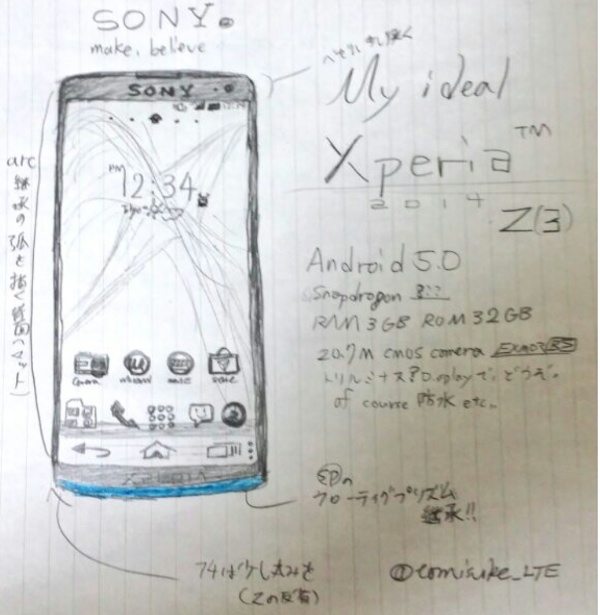 SONY
make.believe
SONY
PM
12:34
XPERIA
My ideal
Xperia™
2014
Z(3)
Android 5.0
Snapdragon 8??
RAM 3GB ROM 32GB
20.7M cmos camera Exmor RS
トリルミナスDisplayで、どうぞ。
of course 防水 etc..
arc継承の弧を描く背面(マット)
フローティングプリズム
継承!!
フチは少し丸みを
(Zの反省)